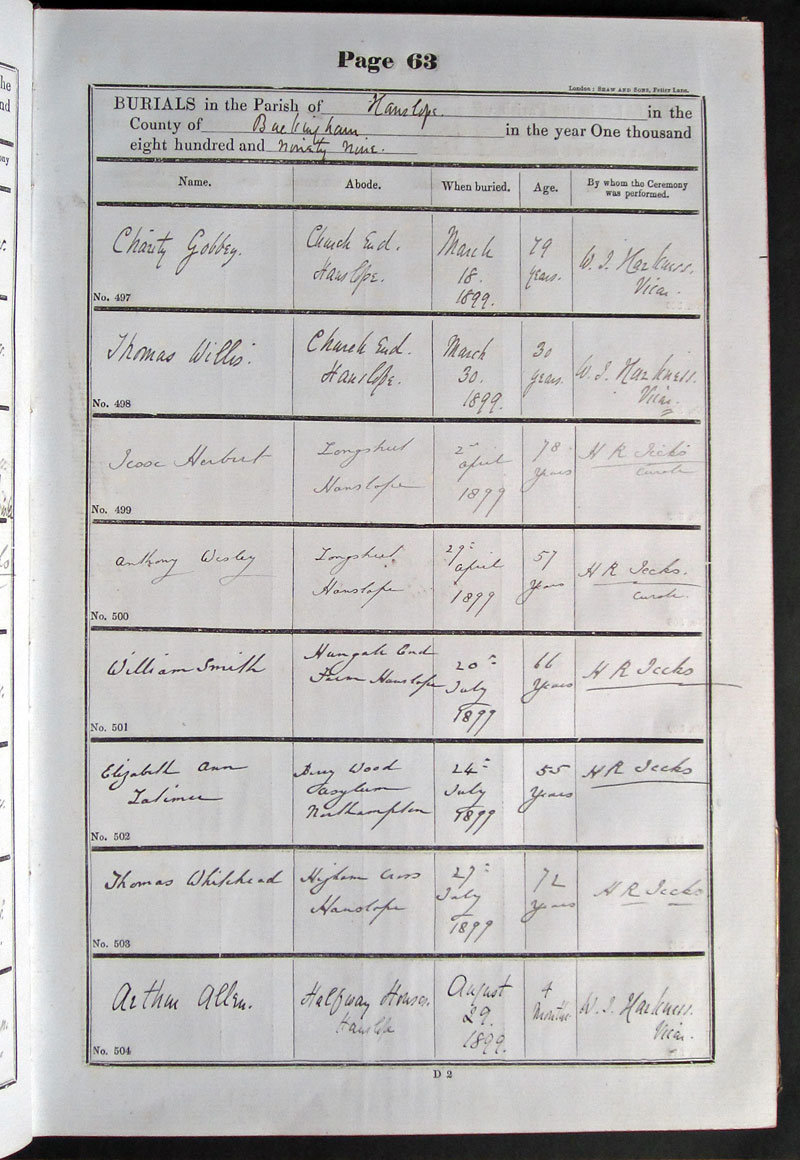 Page 63
London: SHAW AND SONS, Fetter Lane.
BURIALS in the Parish of Hanslope. in the
County of Buckingham in the year One thousand
eight hundred and ninety nine.
Name. Abode. When buried. Age. By whom the Ceremony was performed.
Charity Gobbey.
Church End.
Hanslope.
March
18.
1899.
79
years.
W. J. Harkness.
Vicar.
No. 497
Thomas Willis.
Church End.
Hanslope.
March
30.
1899.
30
years.
W. J. Harkness.
Vicar.
No. 498
Jesse Herbert
Longstreet
Hanslope
2nd
april
1899
78
years
H R Jecks
Curate
No. 499
Anthony Wesley
Longstreet
Hanslope
29th
april
1899
57
years
H R Jecks.
Curate.
No. 500
William Smith
Hungate End
Farm Hanslope
20th
July
1899
66
years
H R Jecks
No. 501
Elizabeth Ann
Latimer
Berry Wood
Asylum
Northampton
24th
July
1899
55
years
H R Jecks
No. 502
Thomas Whitehead
Higham Cross
Hanslope
27th
July
1899
72
years
H R Jecks
No. 503
Arthur Allen.
Halfway Houses.
Hanslope
August
29.
1899.
4
Months
W. J. Harkness.
Vicar.
No. 504
D 2